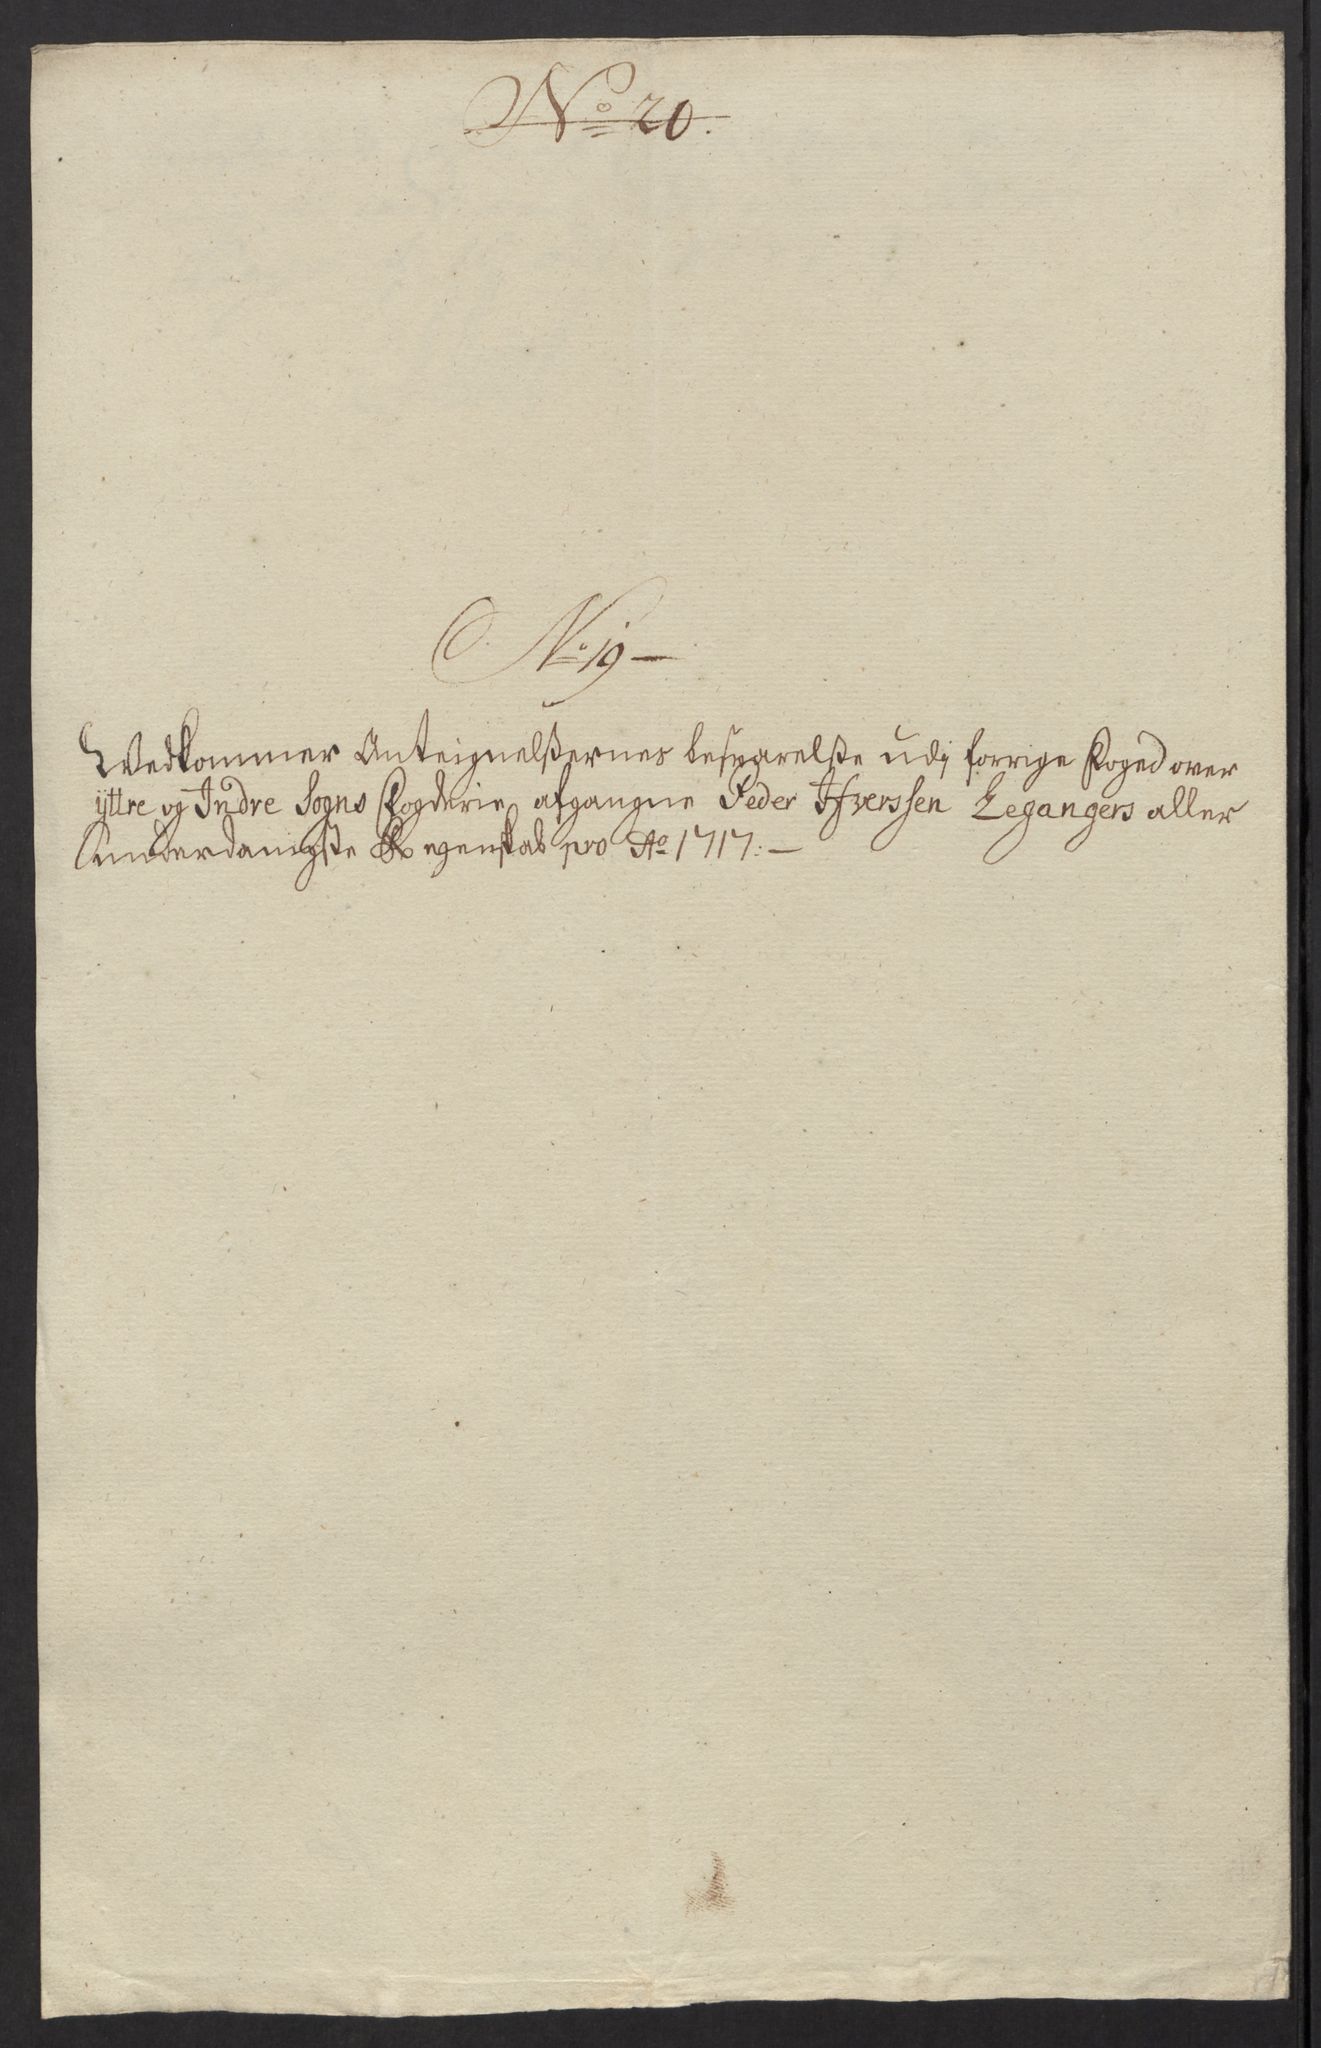 No 20.
No 19 —
Wedkommer Anteignelßernes besvarelße udj forrige Foged over
ÿttre og Indre Sogns Fogderie, afgangne Peder Ifverssen Legangers aller
Underdanigste Regenskab pro Ao 1717: —